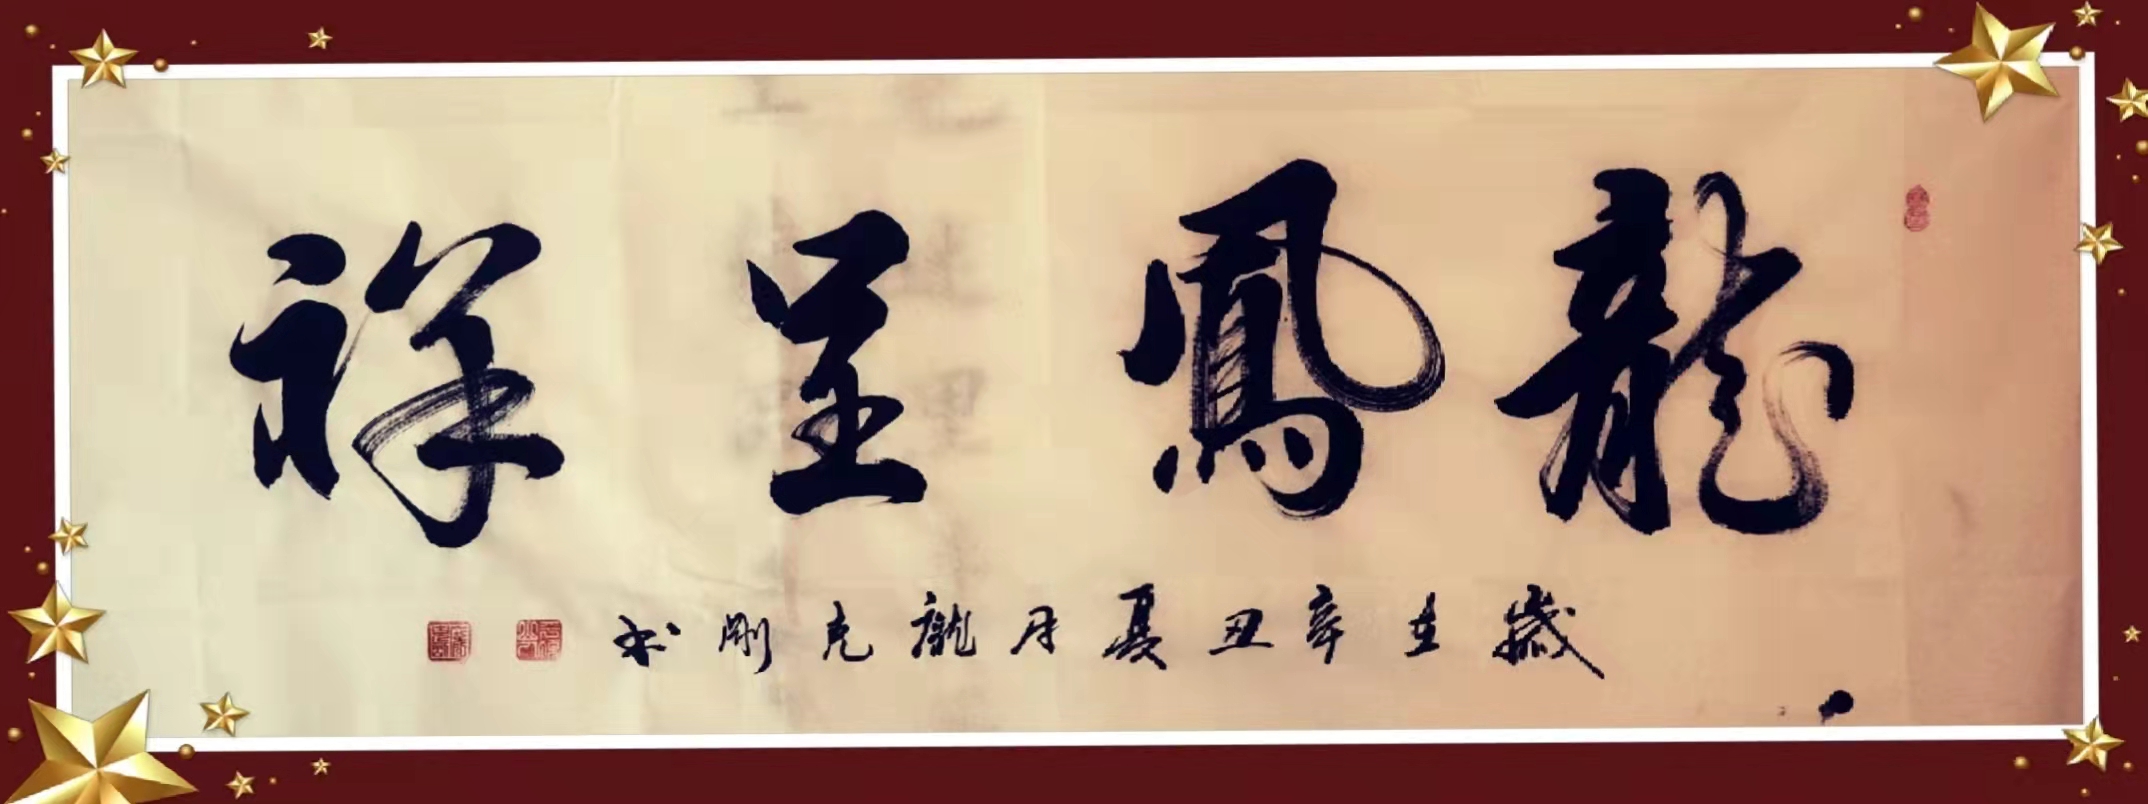 龍鳳呈祥
歲在辛丑夏月龍克剛书